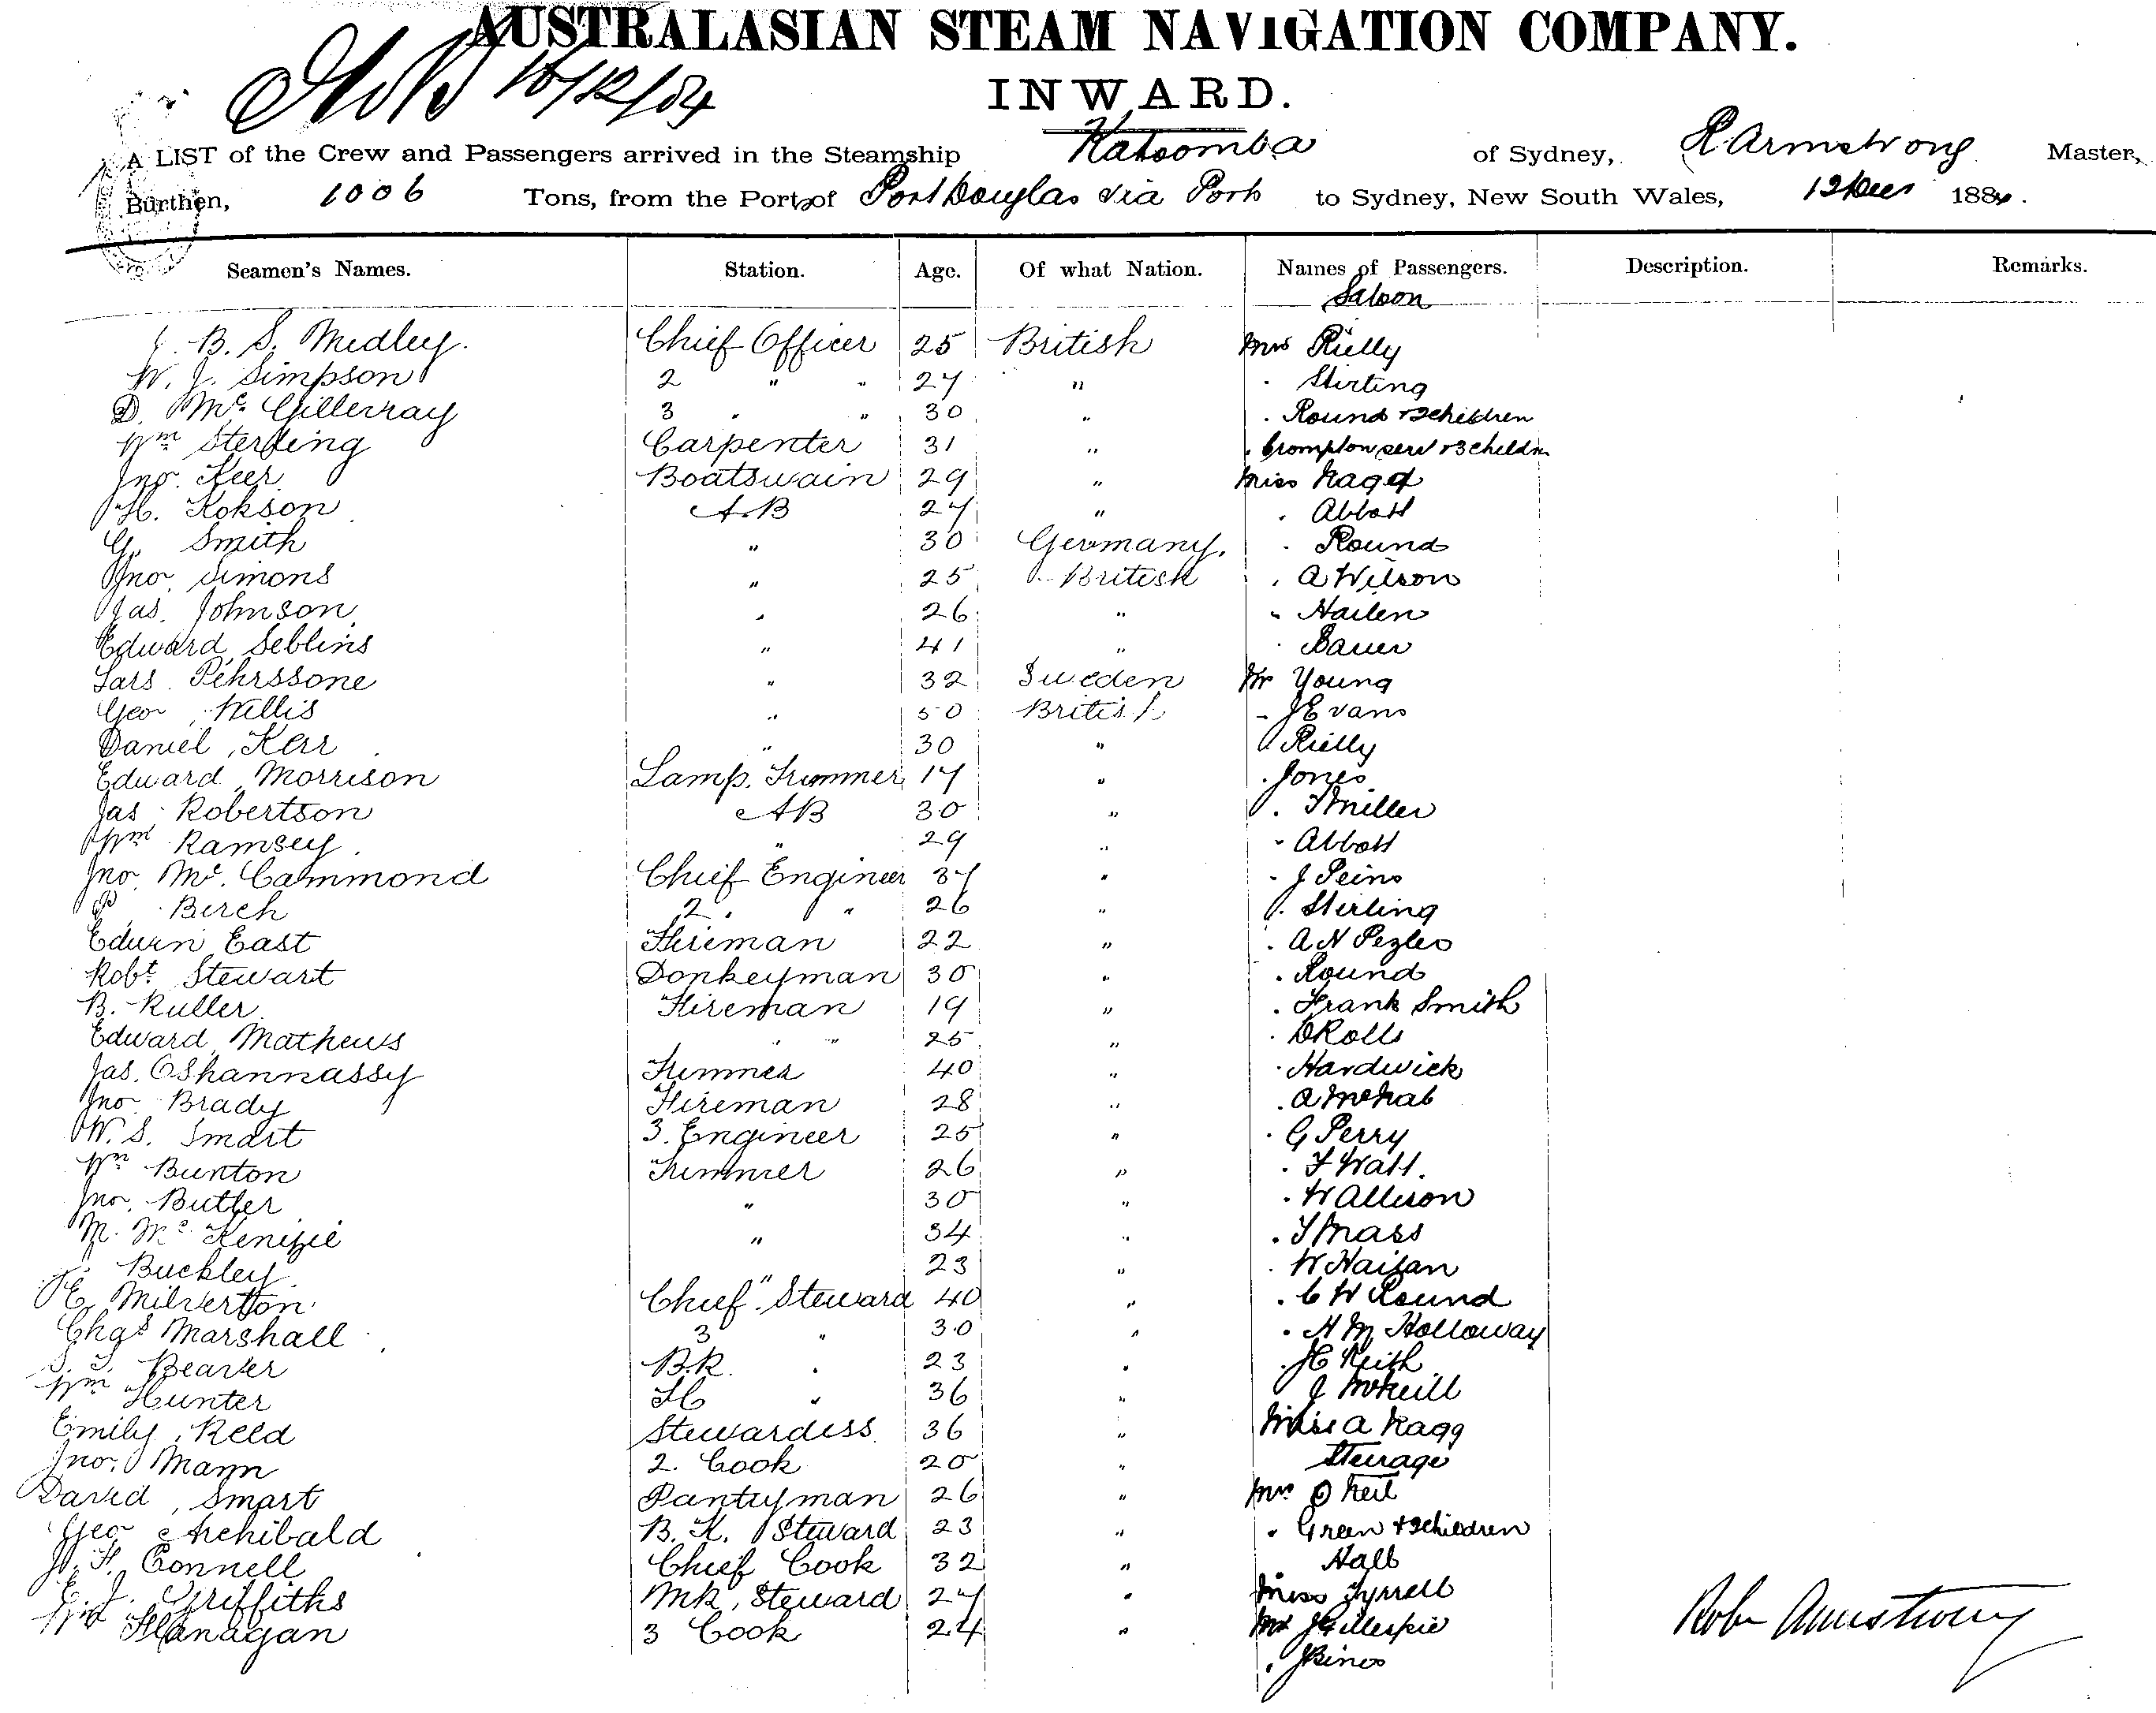 AUSTRALASIAN STEAM NAVIGATION COMPANY.
16/12/84
INWARD.
A LIST of the Crew and Passengers arrived in the Steamship Katoomba of Sydney, R Armstrong Master,
Burthen, 1006 Tons, from the Port of Port Douglas via Ports to Sydney, New South Wales, 12 Decr 1884.
Seamen's Names. Station. Age. Of what Nation. Names of Passengers. Description. Remarks.
Saloon
B. S. Medley. Chief Officer 25 British Mrs Rielly
W. J. Simpson 2 " " 27 " . Stirling
D. Mc. Gillerray 3 " " 30 " . Round & 2 children
Wm Sterling Carpenter 31 " . Crompton serv & 3 childn
Jno. Keer Boatswain 29 " Miss Ragg
H. Kokson A.B 27 " . Abbott
G. Smith " 30 Germany. . Round
Jno. Simons " 25 British . A Wilson
Jas. Johnson " 26 " " Hailen
Edward Seblins " 41 " . Bauer
Lars Pehrssone " 32 Sweden Mr Young
Geo Willis " 50 British - J Evans
Daniel Kerr " 30 " . Rielly
Edward Morrison Lamp. Trimmer 17 " . Jones
Jas Robertson AB 30 " . T Miller
Wm Ramsey " 29 " - Abbott
Jno. Mc. Cammond Chief Engineer 37 " - J Peins
P. Birch 2. " 26 " . Stirling
Edwin East Fireman 22 " . A N Pezles
Robt Stewart Donkeyman 30 " . Round
B. Ruller Fireman 19 " . Frank Smith
Edward Mathews " " 25 " . D Rolls
Jas. OShannassy Trimmer 40 " . Hardwick
Jno Brady Fireman 28 " . A McNab
W. S. Smart 3. Engineer 25 " . G Perry
Wm Bunton Trimmer 26 " . F Watt.
Jno. Butler " 30 " . W Allison
M. Mc Kenizie " 34 " . T Mass
Buckley " 23 " . W Haigan
E. Milverton Chief Steward 40 " . C W Round
Chas Marshall 3 " 30 " . H M Holloway
Beaver B.R. " 23 " . J C Keith
Wm Hunter FC " 36 " J McNeill
Emily Reed Stewardess 36 " Miss A Ragg
Jno. Mann 2. Cook 20 " Steerage
David Smart Pantryman 26 " Mrs O Neil
Geo Archibald B. K. Steward 23 " . Green & 2 children
F. Connell Chief Cook 32 " Hall
E. J. Griffiths MR, Steward 27 " Miss Tyrrell
Wm Flanagan 3 Cook 24 " Mr J Gillespie
. J Bines
Robt Armstrong